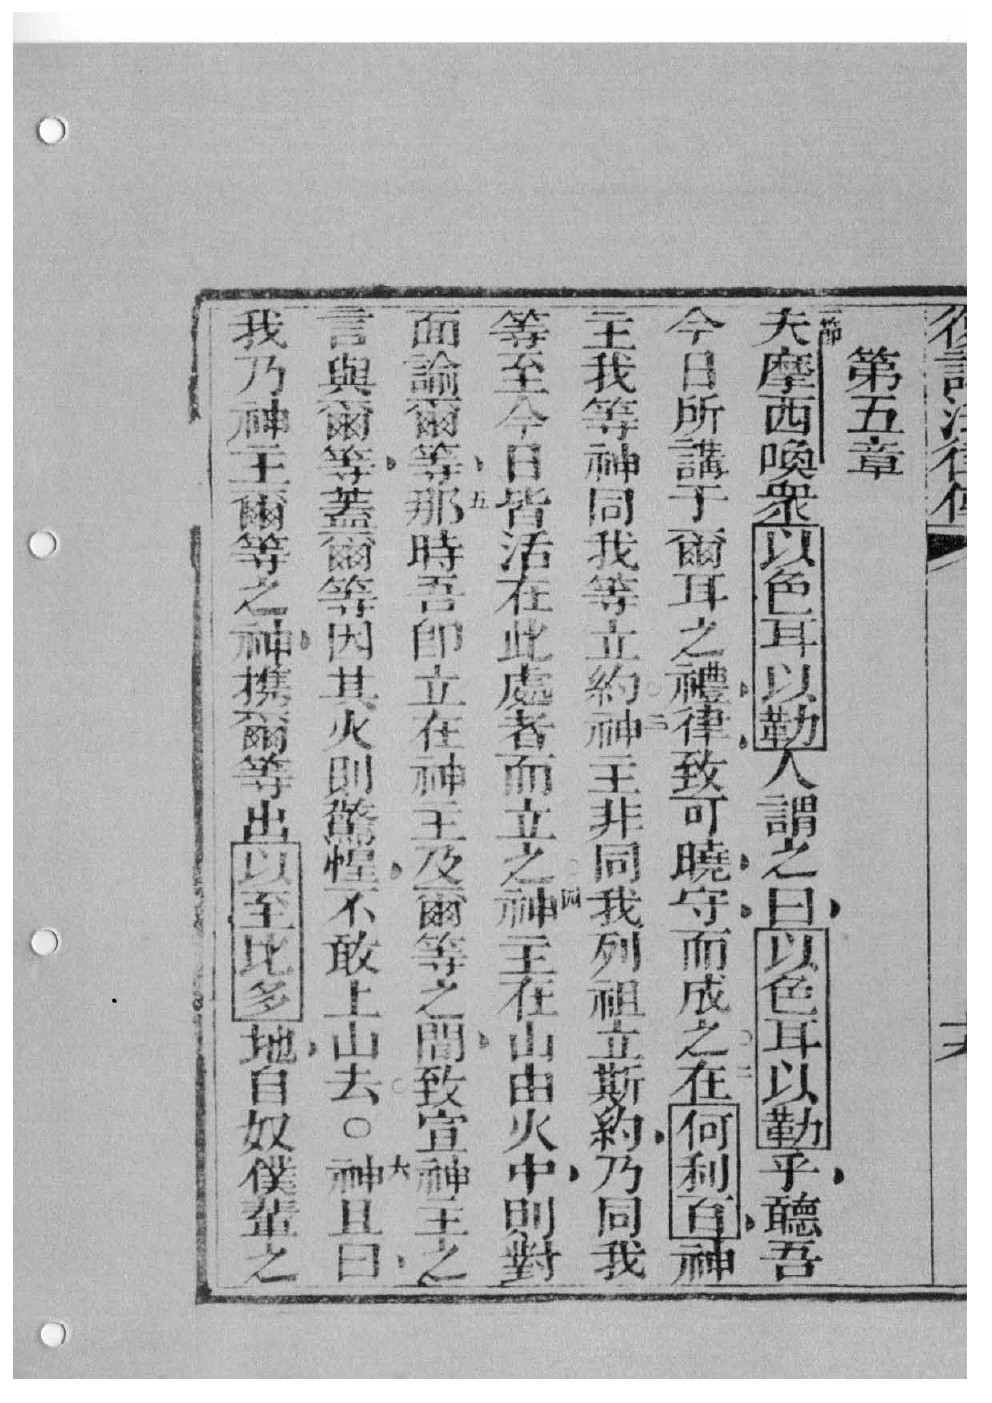 復講法律傳
第五章
一節
夫摩西喚衆以色耳以勒人謂之曰以色耳以勒乎聽吾
今日所講于爾耳之禮律致可曉守而成之○二在何利百神
主我等神同我等立約○三神主非同我列祖立斯約乃同我
等至今日皆活在此處者而立之○四神主在山由火中則對
面諭爾等五那時吾即立在神主及爾等之間致宣神主之
言與爾等蓋爾等因其火則驚惶不敢上山去○六神且曰
我乃神主爾等之神携爾等出以至比多地自奴僕輩之